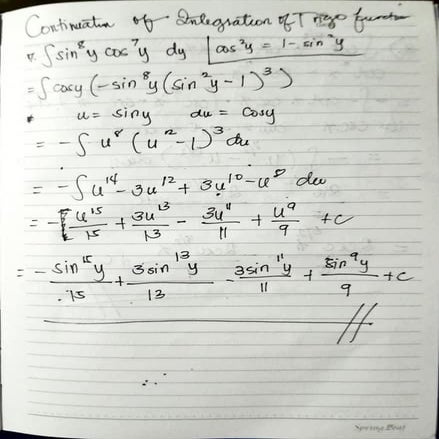 Continuation of Integration of Trigo function
∫ sin⁸y cos⁷y dy | cos²y = 1 - sin²y
= ∫ cosy (-sin⁸y (sin²y - 1)³)
u = siny du = cosy
= -∫ u⁸ (u² - 1)³ du
= -∫ u¹⁴ - 3u¹² + 3u¹⁰ - u⁸ du
= -[u¹⁵/15 + 3u¹³/13 - 3u¹¹/11 + u⁹/9 + c
= -sin¹⁵y/15 + 3sin¹³y/13 - 3sin¹¹y/11 + sin⁹y/9 + c